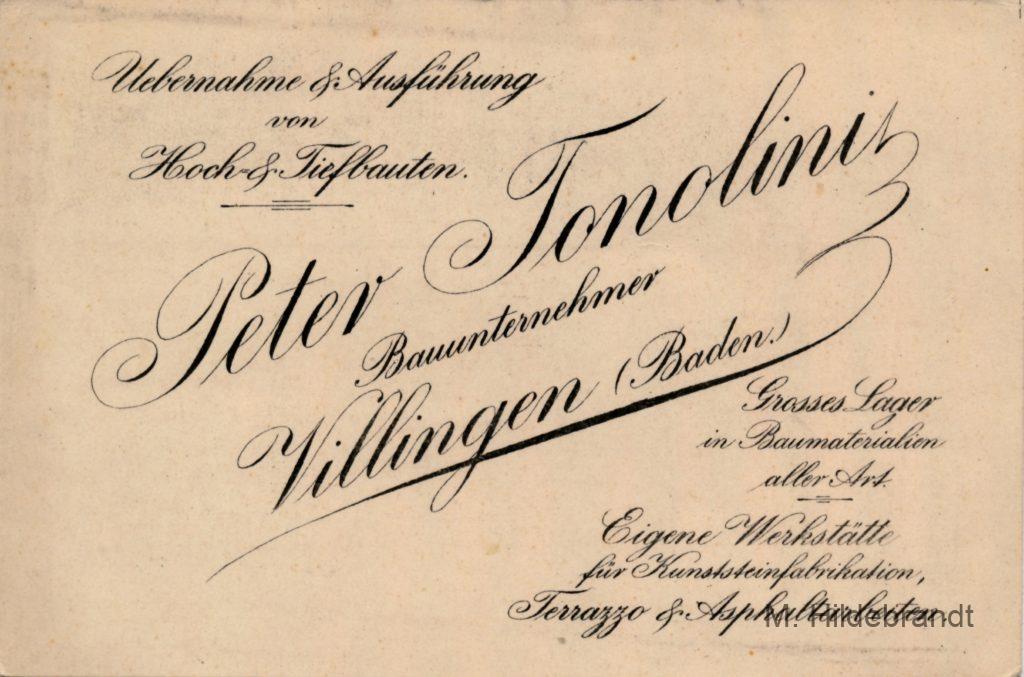 Uebernahme & Ausführung
von
Hoch- & Tiefbauten.
Peter Tonolini
Bauunternehmer
Villingen (Baden.)
Grosses Lager
in Baumaterialien
aller Art.
Eigene Werkstätte
für Kunststeinfabrikation,
Terrazzo & Asphaltarbeiten.
M. Hildebrandt